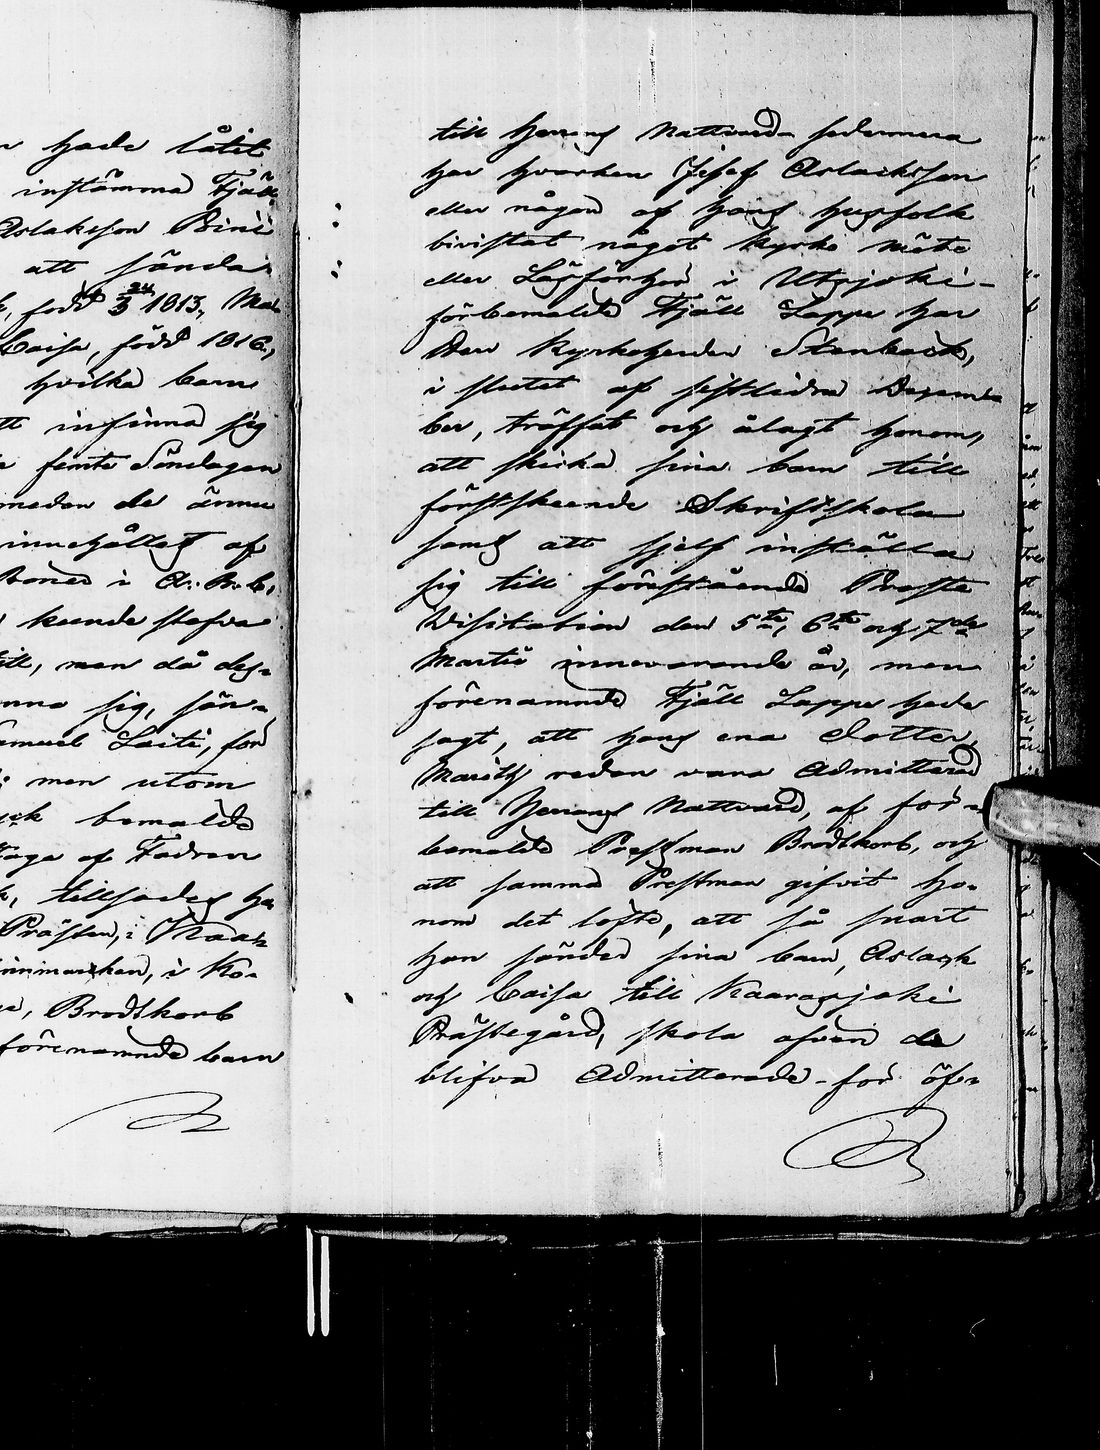 hade låtit
instämma Fjäll
Aslaksson Pinié
att sända
född 24/3 1813, Ma-
Caisa, född 1816,
hvilka barn
infinna sig
femte Söndagen
medan de ännu
innehållet af
Bonen i A. B. C.
kunde stafva
till, men då des-
sig, sän-
Samuel Laiti, för
men utom
bemälde
Fadren
tillsades ha
Prästen, i Kaar
innmarken, i Ko-
Brodtkorb
förenämnde barn
till Herrans Nattvard sedermera
har hvarken Josef Aslacksson
eller någon af hans husfolk
bivistat något kyrko möte
eller Läsförhör i Utsjoki -
förbemälde Fjäll Lapp har
Herr Kyrkoherden Stenbäck,
i slutet af sistledne Decem-
ber, träffat och ålagt honom,
att skicka sina barn till
förstskeende Skriftskola
samt att sjelf inställa
sig till förestående Prosts
Visitation den 5te, 6te och 7de
Martii innevarande år, men
förenämnde Fjäll Lapp hade
sagt, att hans ena Dotter,
Marith redan vara Admitterad
till Herrans Nattvard, af för-
bemälde Prestman Brodtkorb, och
att samma Prestman gifvit ho-
nom det löfte, att så snart
han sänder sina barn, Aslack
och Caisa till Kaarasjoki
Prästegård, skola äfven de
blifva Admitterade - för öf-